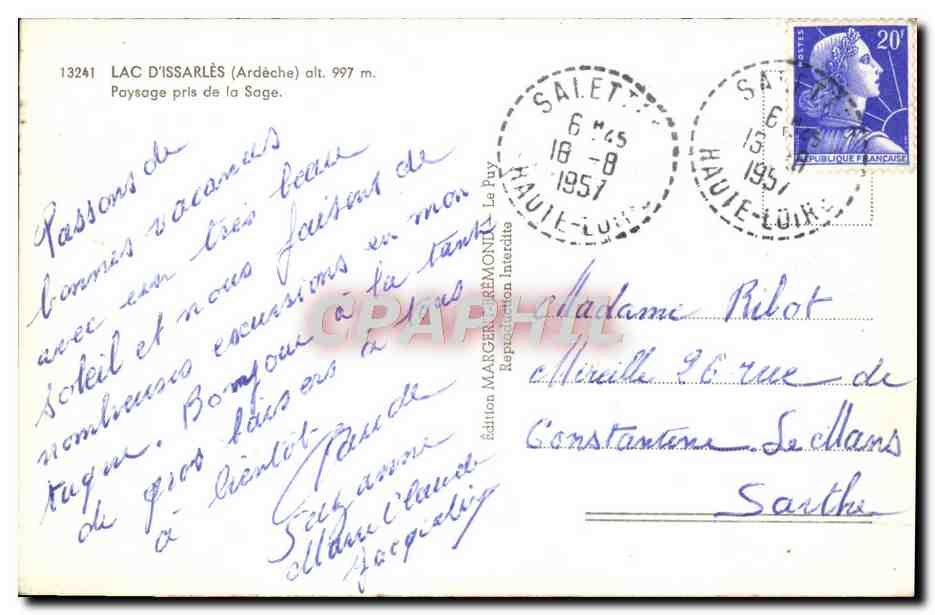 13241 LAC D'ISSARLÈS (Ardèche) alt. 997 m.
Paysage pris de la Sage.
Passons de
bonnes vacances
avec un très beau
soleil et nous faisons de
nombreuses excursions en mon
tagne. Bonjour à la tante
de gros baisers à tous
à bientôt
Claude
Suzanne
Marie Claude
Édition MARGERIT-BRÉMOND - Le Puy
Reproduction Interdite
CPAPHIL
SALETTES
6 H 45
18 -8
1957
HAUTE-LOIRE
SALETTES
6 H 45
18 -8
1957
HAUTE-LOIRE
POSTES
20F
RÉPUBLIQUE FRANÇAISE
Madame Ribot
Mireille 26 rue de
Constantine Le Mans
Sarthe